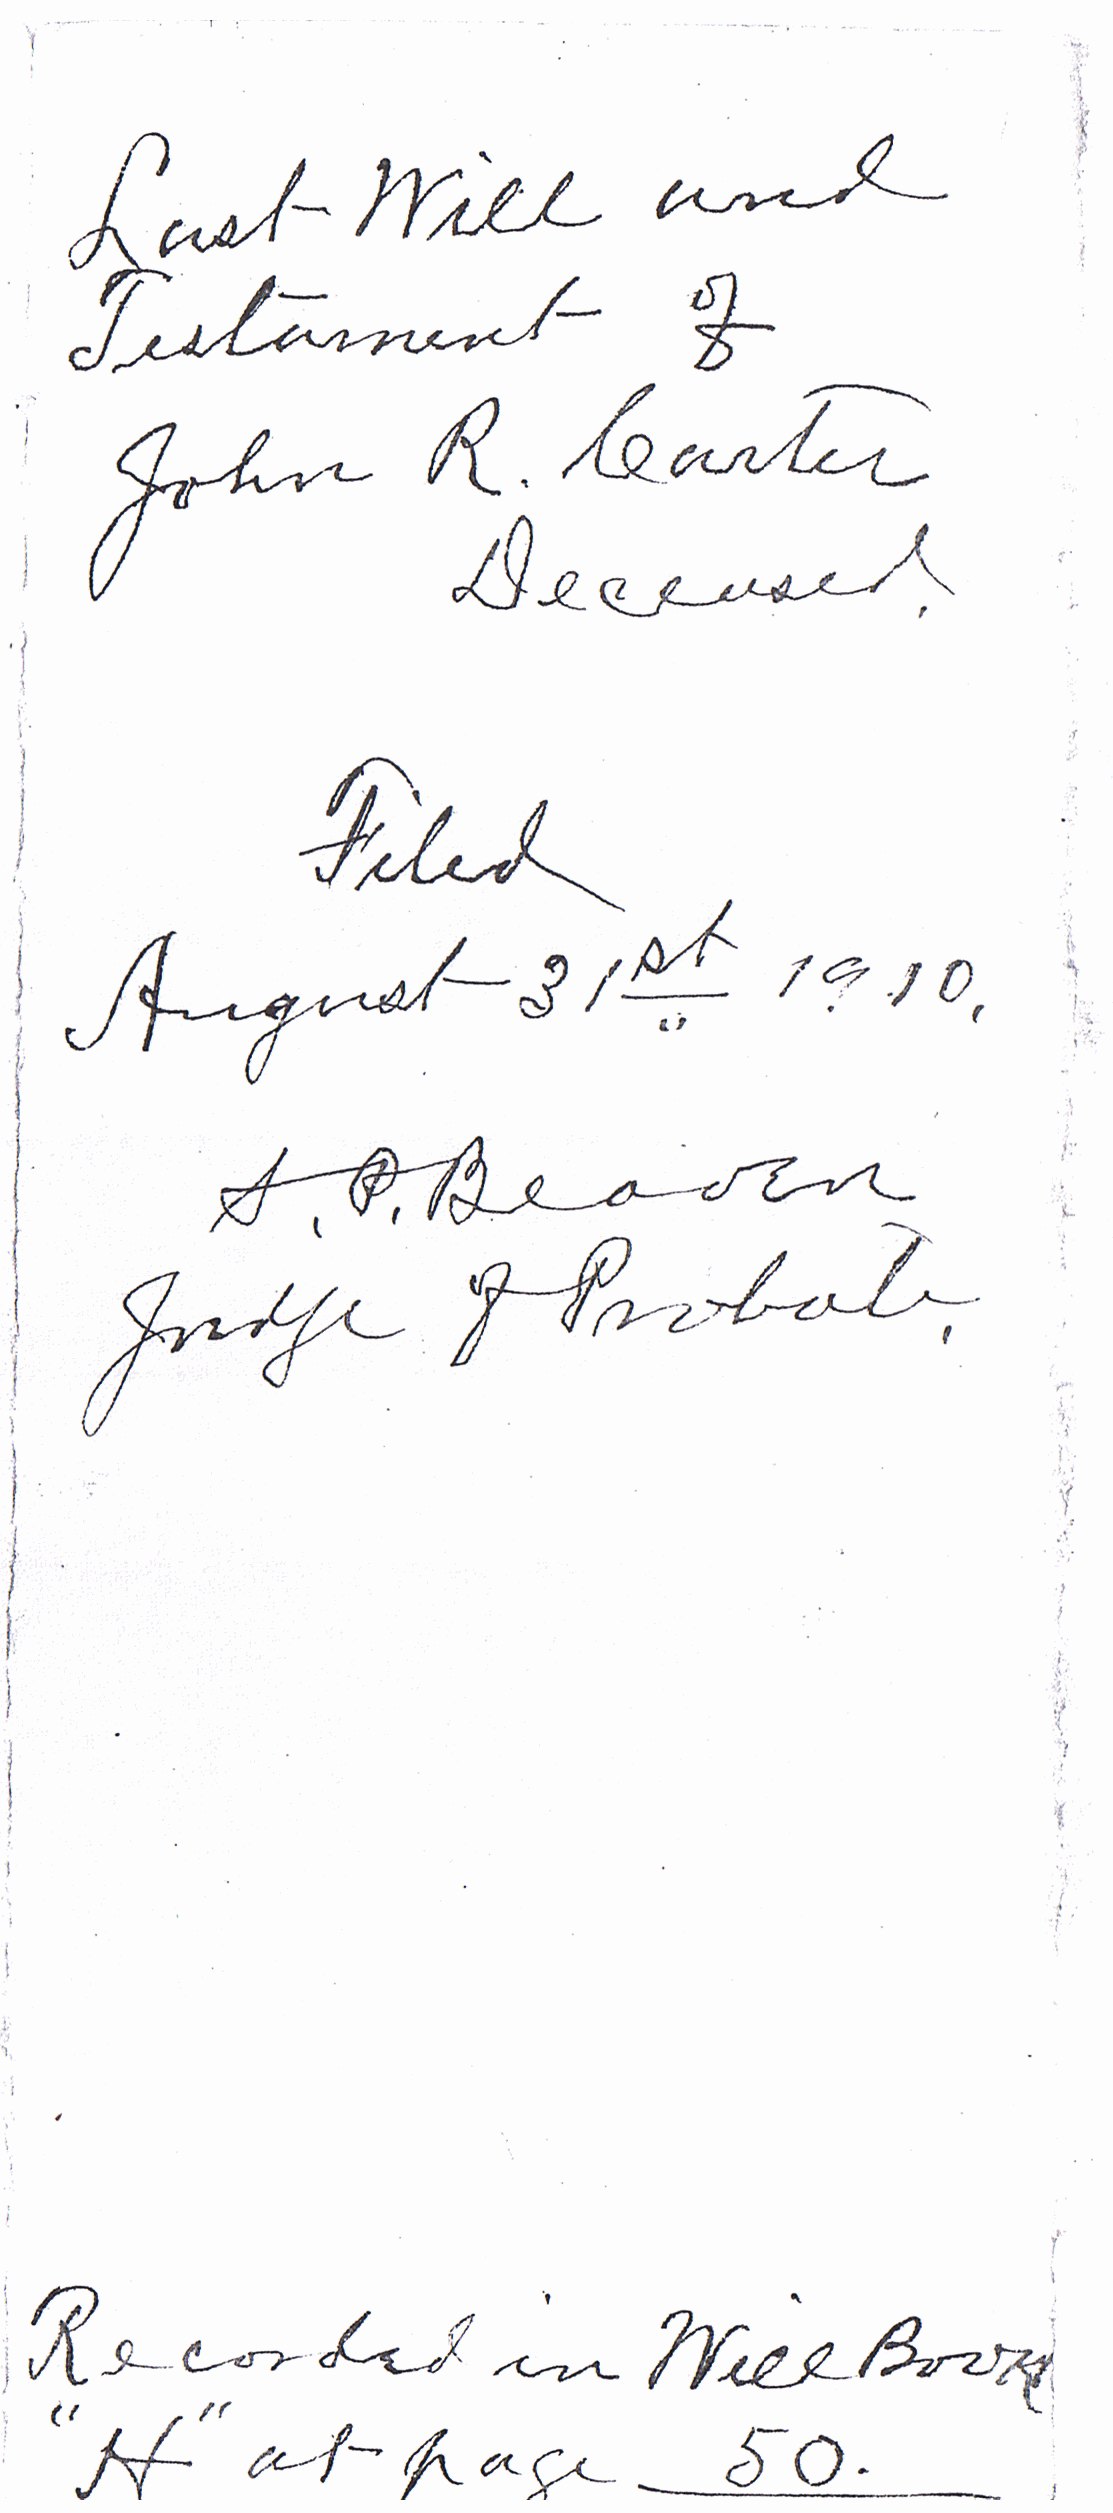 Last Will and
Testament of
John R. Carter
Deceased.
Filed
August 31st 1910.
S. P. Beaven
Judge of Probate.
Recorded in Will Book
"H" at page 50.